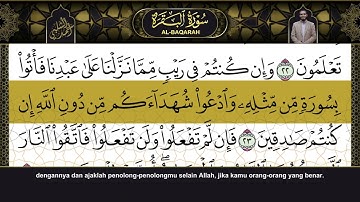 سُورَةُ البَقَرَة
AL-BAQARAH
تَعْلَمُونَ ٢٢ وَإِن كُنتُمْ فِى رَيْبٍ مِّمَّا نَزَّلْنَا عَلَىٰ عَبْدِنَا فَأْتُوا۟
بِسُورَةٍ مِّن مِّثْلِهِۦ وَٱدْعُوا۟ شُهَدَآءَكُم مِّن دُونِ ٱللَّهِ إِن
كُنتُمْ صَٰدِقِينَ ٢٣ فَإِن لَّمْ تَفْعَلُوا۟ وَلَن تَفْعَلُوا۟ فَٱتَّقُوا۟ ٱلنَّارَ
dengannya dan ajaklah penolong-penolongmu selain Allah, jika kamu orang-orang yang benar.